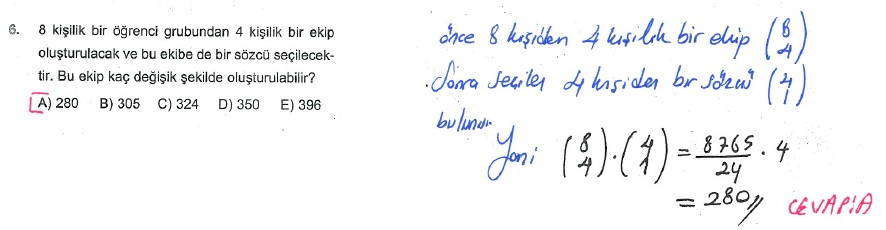 6. 8 kişilik bir öğrenci grubundan 4 kişilik bir ekip
oluşturulacak ve bu ekibe de bir sözcü seçilecek-
tir. Bu ekip kaç değişik şekilde oluşturulabilir?
A) 280 B) 305 C) 324 D) 350 E) 396
önce 8 kişiden 4 kişilik bir ekip (8 4)
Sonra seçilen 4 kişiden bir sözcü (4 1)
bulunur.
Yani (8 4) . (4 1) = 8765/24 . 4
= 280//
CEVAP:A